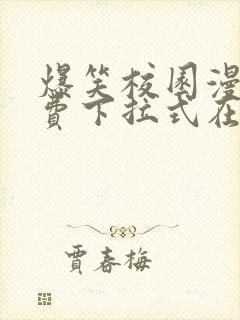 爆笑校园漫
费下拉式在
贾春梅